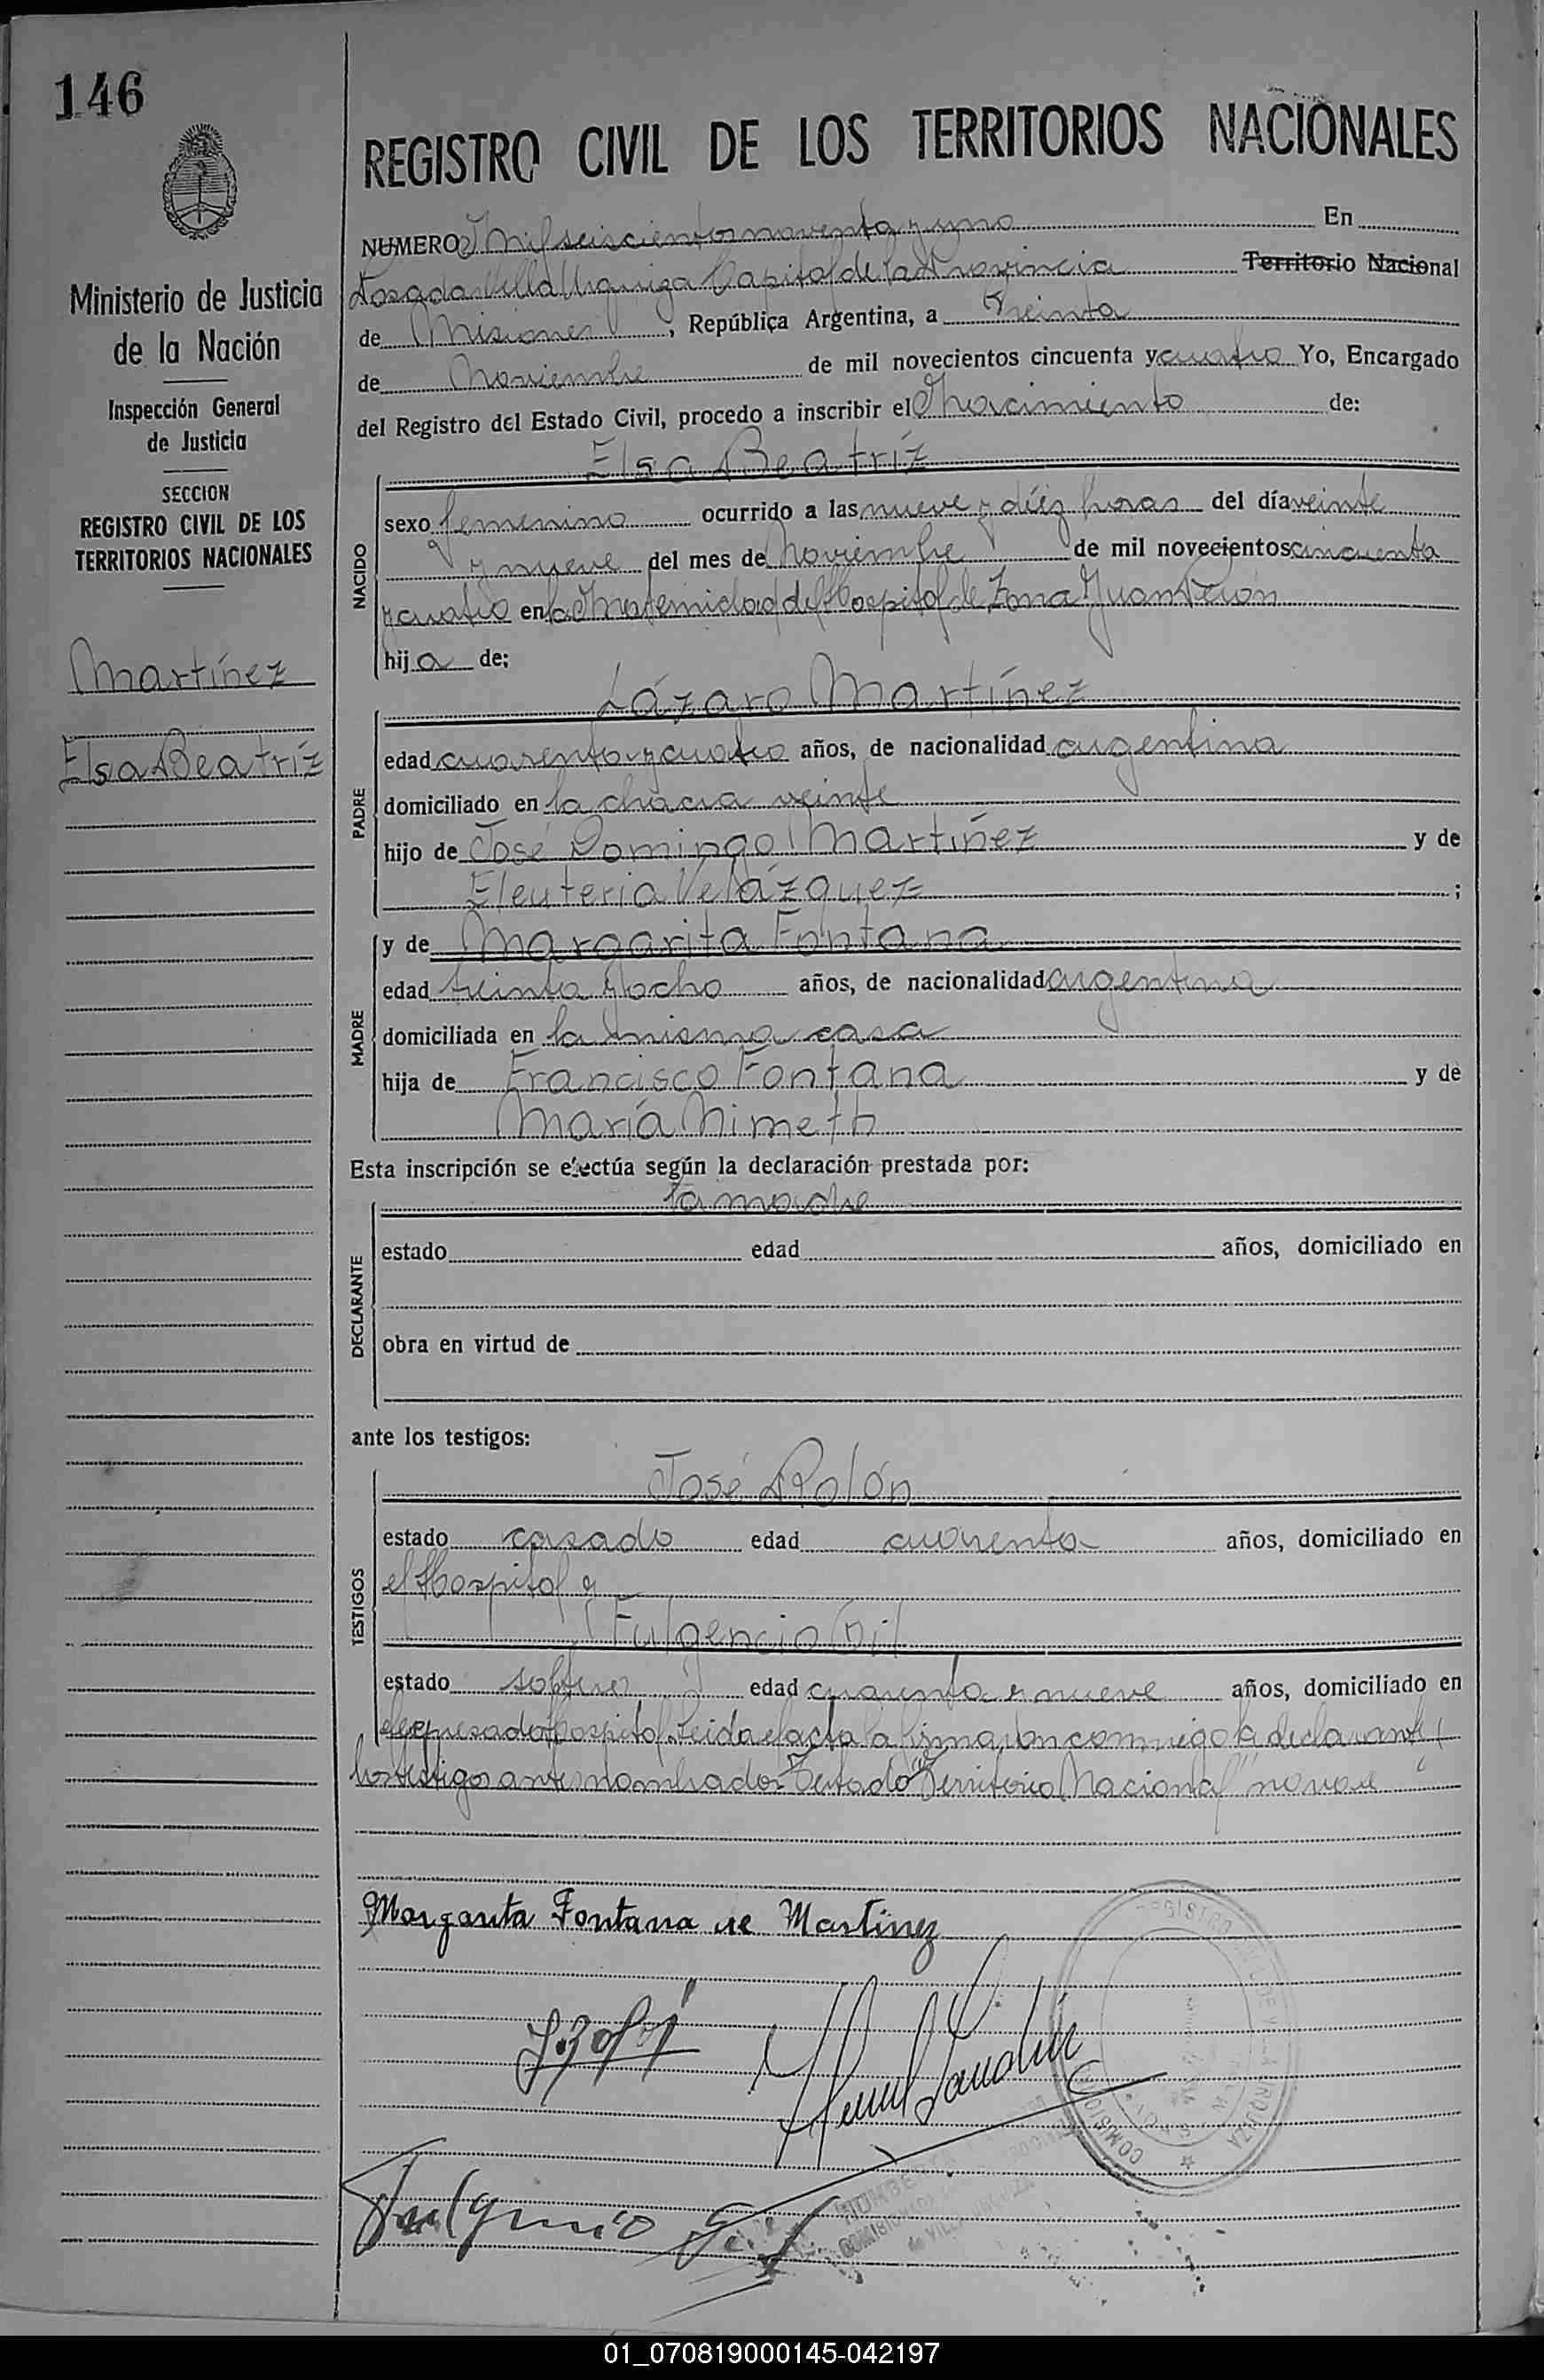 146
REGISTRO CIVIL DE LOS TERRITORIOS NACIONALES
Ministerio de Justicia
de la Nación
Inspección General
de Justicia
SECCION
REGISTRO CIVIL DE LOS
TERRITORIOS NACIONALES
Martínez
Elsa Beatríz
NUMERO mil seiscientos noventa y uno En
Posadas Villa Urquiza Capital de la Provincia Territorio Nacional
de Misiones, República Argentina, a Treinta
de Noviembre de mil novecientos cincuenta y cuatro Yo, Encargado
del Registro del Estado Civil, procedo a inscribir el Nacimiento de:
NACIDO
Elsa Beatríz
sexo femenino ocurrido a las nueve y diéz horas del día veinte
y nueve del mes de Noviembre de mil novecientos cincuenta
y cuatro en la Maternidad del Hospital de Zona Juan Perón
hija de:
PADRE
Lázaro Martínez
edad cuarenta y cuatro años, de nacionalidad argentina
domiciliado en la chacra veinte
hijo de José Domingo Martíñez y de
Eleuteria Velázquez ;
MADRE
y de Margarita Fontana
edad treinta y ocho años, de nacionalidad argentina
domiciliada en la misma casa
hija de Francisco Fontana y de
María Nimeth
Esta inscripción se efectúa según la declaración prestada por:
DECLARANTE
la madre
estado edad años, domiciliado en
obra en virtud de
ante los testigos:
TESTIGOS
José Rolón
estado casado edad cuarenta años, domiciliado en
el Hospital y
Fulgencio Gil
estado soltero edad cuarenta y nueve años, domiciliado en
el expresado Hospital. Leida el acta la firmaron conmigo la declarante y
los testigos antes nombrados Testado "Territorio Nacional" no vale
Margarita Fontana de Martínez
Fulgencio Gil
REGISTRO CIVIL DE VILLA URQUIZA
COMISIO
01_070819000145-042197